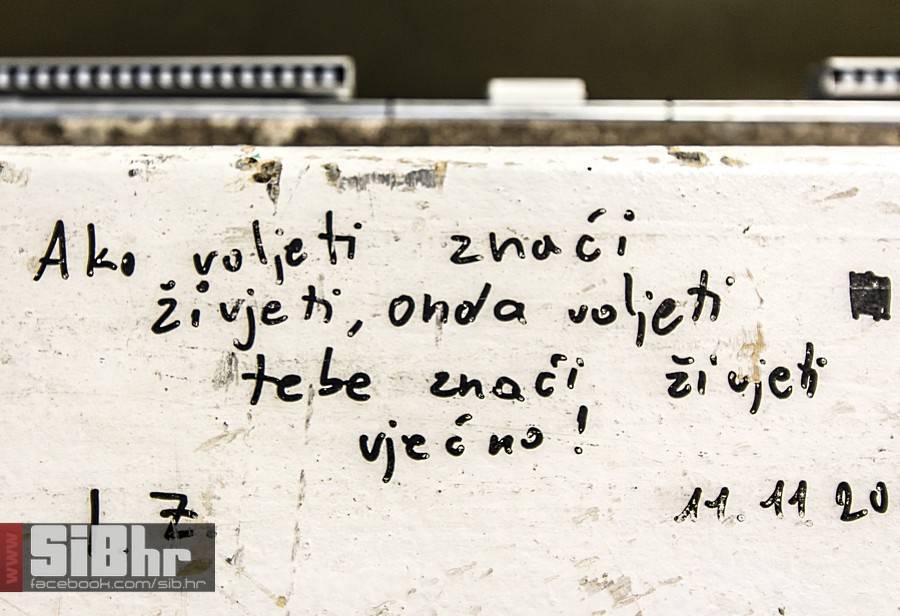 Ako voljeti znaći
živjeti, onda voljeti
tebe znaći živjeti
vjećno!
I. Z.
11. 11 20
www SiBhr
facebook.com/sib.hr